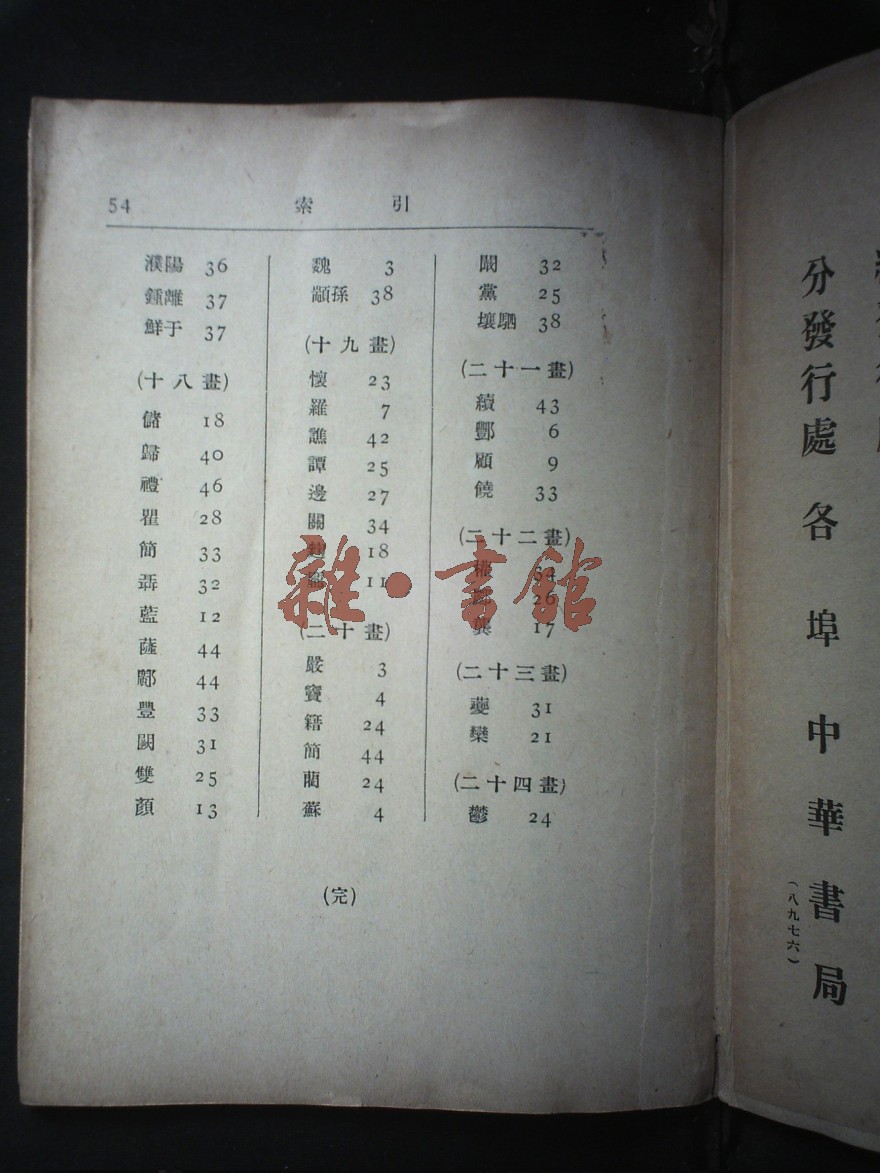 54 索引
濮陽 36
鍾離 37
鮮于 37
(十八畫)
儲 18
歸 40
禮 46
瞿 28
簡 33
聶 32
藍 12
薩 44
酈 44
豐 33
闕 31
雙 25
顏 13
魏 3
顓孫 38
(十九畫)
懷 23
羅 7
譙 42
譚 25
邊 27
關 34
18
11
(二十畫)
嚴 3
寶 4
籍 24
簡 44
藺 24
蘇 4
闞 32
黨 25
壤駟 38
(二十一畫)
續 43
酆 6
顧 9
饒 33
(二十二畫)
權 34
26
龔 17
(二十三畫)
31
欒 21
(二十四畫)
鬱 24
(完)
雜·書館
分發行處 各埠中華書局
(八九七六)